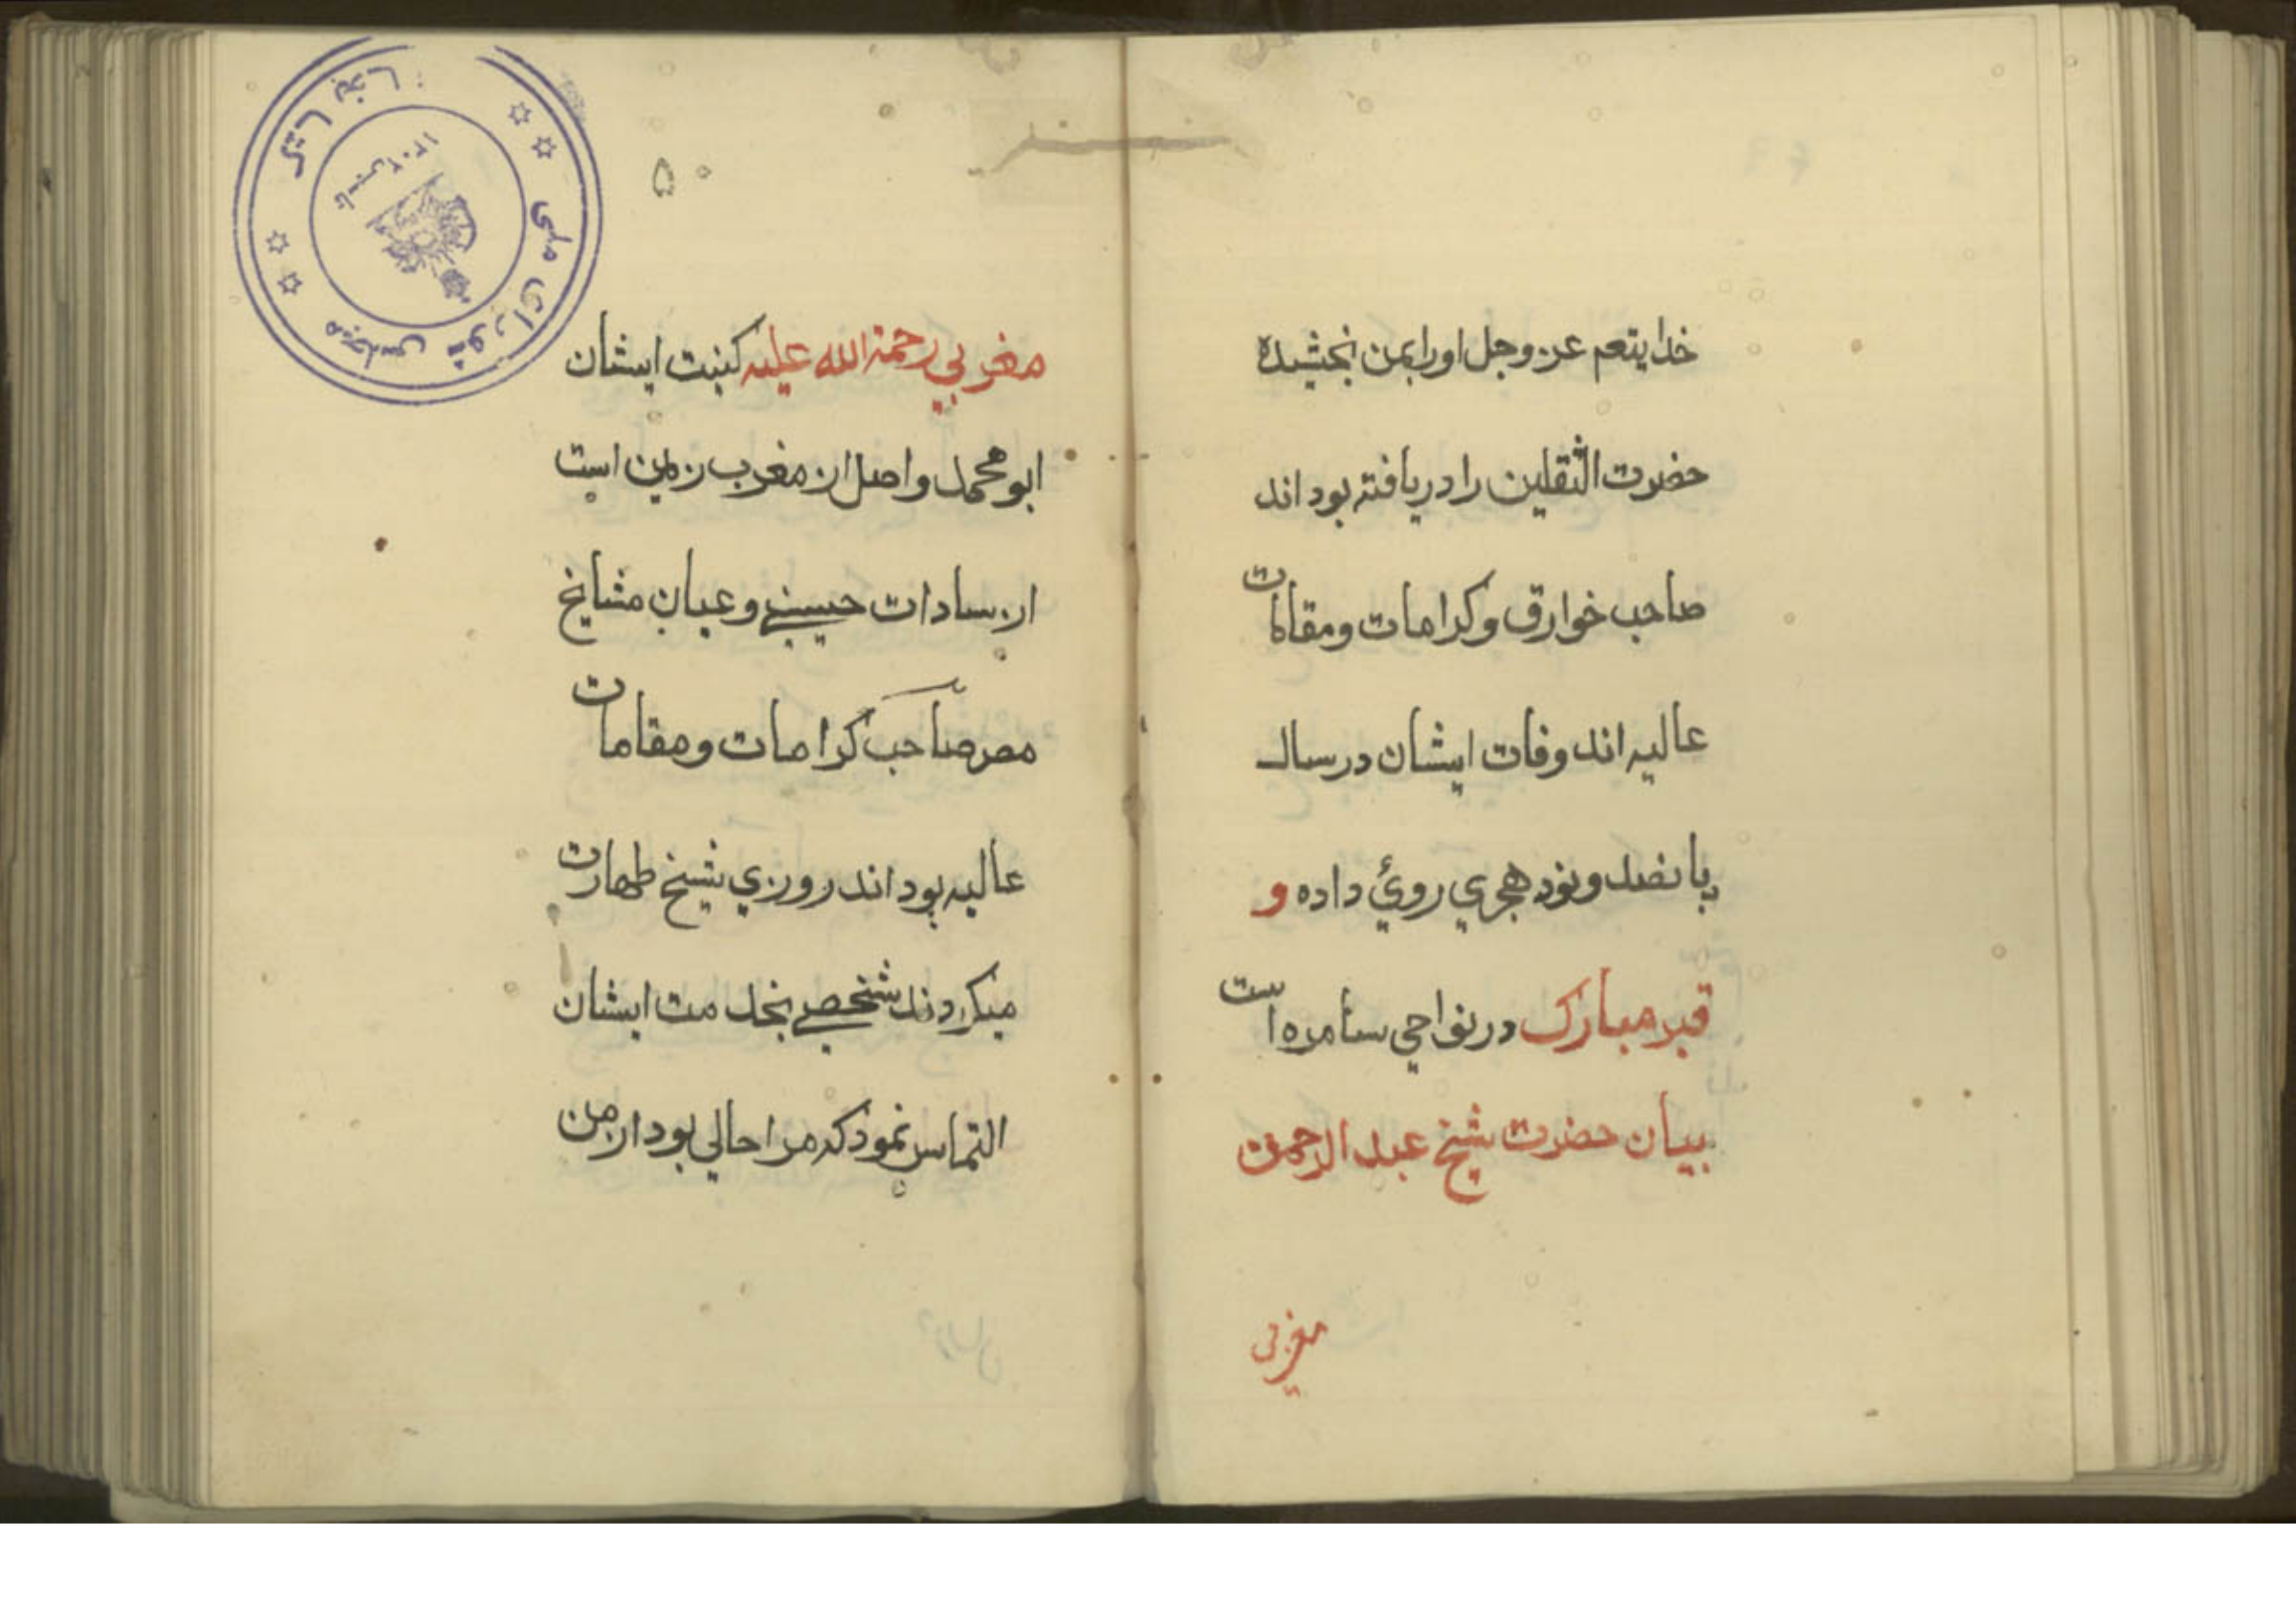 خدایتعم عز وجل اورا بمن بخشیده
حضرت الثقلین را دریافته بود اند
صاحب خوارق و کرامات و مقامات
عالیه اند وفات ایشان در سال
پانصد و نود هجري روئ داده و
قبر مبارک در نواحي سامره است
بیان حضرت شیخ عبد الرحمن
مغربی
۵۰
مغربي رحمة الله علیه کنیت ایشان
ابو محمد و اصل از مغرب زمین است
از سادات حسینے و عیان مشایخ
مصر صاحب کرامات و مقامات
عالیه بود اند روزي شیخ طهارت
میکردند شخصے بخدمت ایشان
التماس نمود که مرا حالي بود از من
کتابخانه
مجلس شورای ملی